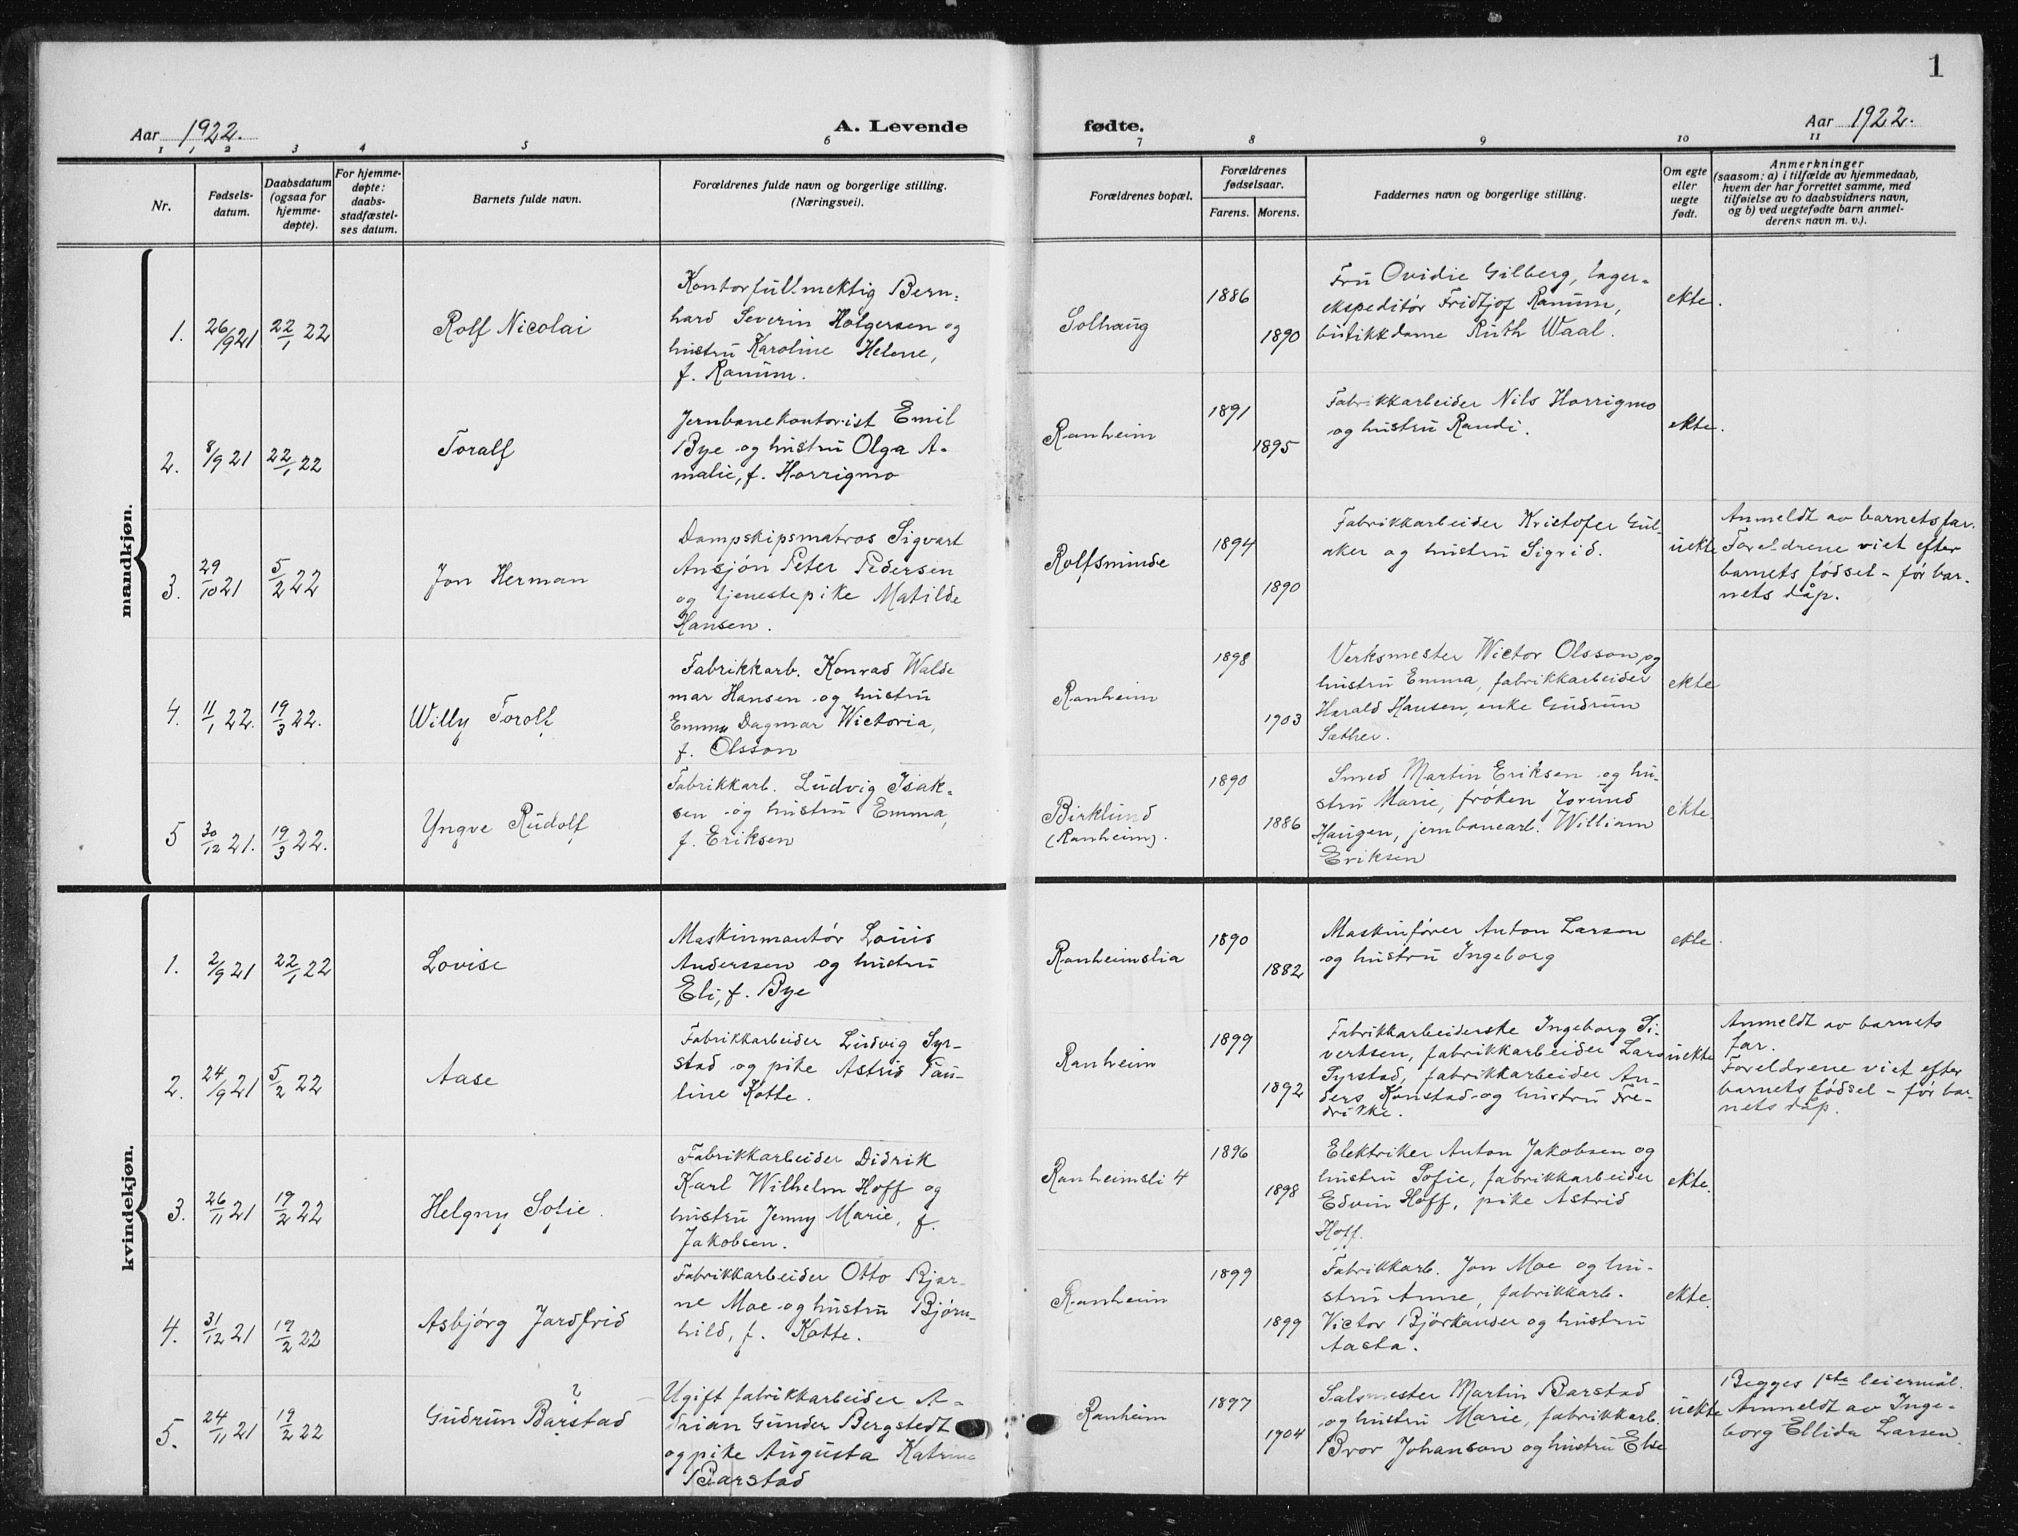 1
Aar 1922.
A. Levende fødte.
Aar 1922.
1 2 3 4 5 6 7 8 9 10 11
Nr.
Fødsels-
datum.
Daabsdatum
(ogsaa for
hjemme-
døpte).
For hjemme-
døpte:
daabs-
stadfæstel-
ses datum.
Barnets fulde navn.
Forældrenes fulde navn og borgerlige stilling.
(Næringsvei).
Forældrenes bopæl.
Forældrenes
fødselsaar.
Farens. Morens.
Faddernes navn og borgerlige stilling.
Om egte
eller
uegte
født.
Anmerkninger
(saasom: a) i tilfælde av hjemmedaab,
hvem der har forrettet samme, med
tilføielse av to daabsvidners navn,
og b) ved uegtefødte barn anmel-
derens navn m. v.).
mandkjøn.
1. 26/9 21 22/1 22
Rolf Nicolai
Kontorfullmektig Bern-
hard Severin Holgersen og
hustru Karoline Helene,
f. Ranum.
Solhaug
1886
1890
Fru Ovidie Gilberg, lager-
ekspeditør Fridtjof Ranum,
butikkdame Ruth Waal.
ekte.
2. 8/9 21 22/1 22
Toralf
Jernbanekontorist Emil
Bye og hustru Olga A-
malie, f. Horrigmo
Ranheim
1891
1895
Fabrikkarbeider Nils Horrigmo
og hustru Randi.
ekte.
3. 29/10 21 5/2 22
Jon Herman
Dampskipsmatros Sigvart
Ansjøn Peter Pedersen
og tjenestepike Matilde
Hansen.
Rolfsminde
1894
1890
Fabrikkarbeider Kristofer Gul-
aker og hustru Sigrid.
uekte
Anmeldt av barnets far.
Foreldrene viet efter
barnets fødsel - før bar-
nets dåp.
4. 11/1 22. 19/3 22.
Willy Torolf
Fabrikkarb. Konrad Walde
mar Hansen og hustru
Emma Dagmar Wictoria,
f. Olsson
Ranheim
1898
1903
Verksmester Wictor Olsson og
hustru Emma, fabrikkarbeider
Harald Hansen, enke Gudrun
Sæther.
ekte
5 30/12 21. 19/3 22.
Yngve Rudolf
Fabrikkarb. Ludvig Isak-
sen og hustru Emma,
f. Eriksen
Birklund
(Ranheim).
1890
1886
Smed Martin Eriksen og hu-
stru Marie, frøken Jorund
Haugen, jernbanearb. William
Eriksen
ekte.
kvindekjøn.
1. 2/9 21 22/1 22
Lovise
Maskinmontør Louis
Anderssen og hustru
Eli, f. Bye
Ranheimslia
1890
1882
Maskinfører Anton Larson
og hustru Ingeborg
ekte.
2. 24/9 21 5/2 22
Aase
Fabrikkarbeider Ludvig Syr-
stad og pike Astrid Pau-
line Kotte.
Ranheim
1899
1892
Fabrikkarbeiderske Ingeborg Si-
vertsen, fabrikkarbeider Lars
Syrstad, fabrikkarbeider An-
ders Konstad og hustru Fre-
drikke.
uekte
Anmeldt av barnets
far.
Foreldrene viet efter
barnets fødsel - før bar-
nets dåp.
3. 26/11 21 19/2 22
Helgny Sofie.
Fabrikkarbeider Didrik
Karl Wilhelm Hoff og
hustru Jenny Marie, f.
Jakobsen.
Ranheimsli 4
1896
1898
Elektriker Anton Jakobsen og
hustru Sofie, fabrikkarbeider
Edvin Hoff, pike Astrid
Hoff.
ekte.
4. 31/12 21 19/2 22
Asbjørg Jardfrid
Fabrikkarbeider Otto Bjar-
ne Moe og hustru Bjørn-
hild, f. Kotte.
Ranheim
1899
1899
Fabrikkarb. Jon Moe og hu-
stru Anne, fabrikkarb.
Victor Björkander og hustru
Aasta.
ekte.
5. 24/11 21 19/2 22
?
Gudrun Barstad
Ugift fabrikkarbeider A-
drian Gunder Bergstedt
og pike Augusta Katrine
Barstad
Ranheim
1897
1904
Salsmester Martin Barstad
og hustru Marie, fabrikkarb.
Bror Johanson og hustru Else
uekte
Begges 1ste leiermål.
Anmeldt av Inge-
borg Ellida Larsen.